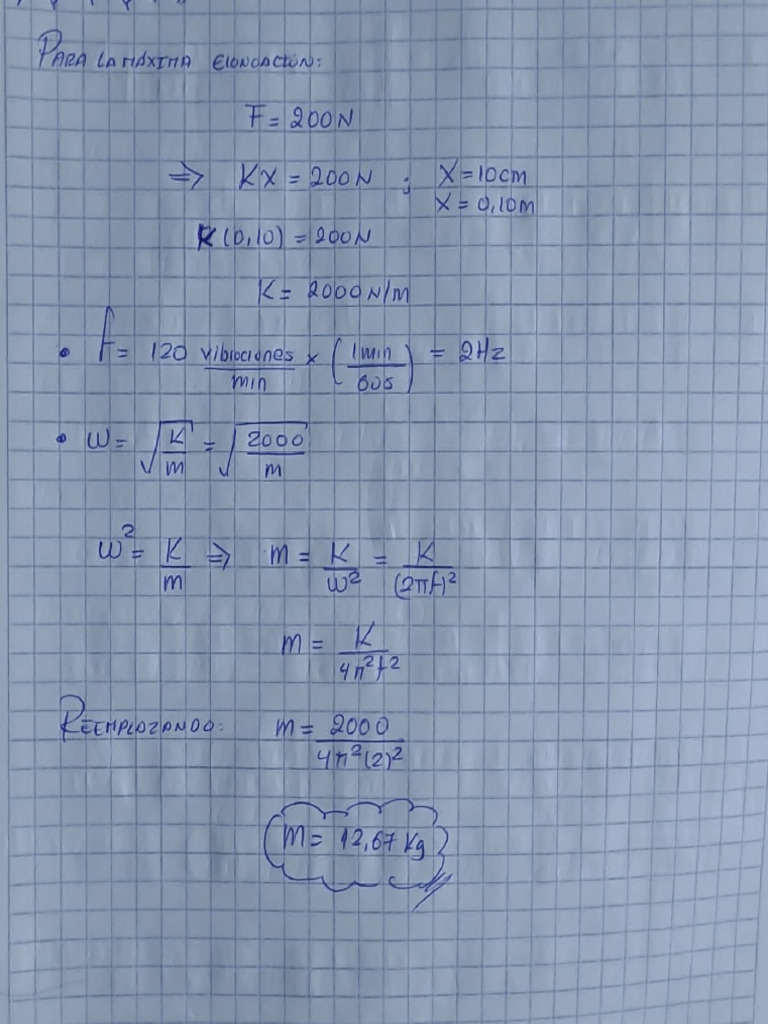 PARA LA MÁXIMA ELONGACIÓN:
F = 200N
⇒ KX = 200N ; X = 10cm
X = 0,10m
K (0,10) = 200N
K = 2000 N/m
• f = 120 vibraciones/min × (1min/60s) = 2Hz
• ω = √(K/m) = √(2000/m)
ω² = K/m ⇒ m = K/ω² = K/(2πf)²
m = K/4π²f²
REEMPLAZANDO: m = 2000/4π²(2)²
m = 12,67 Kg